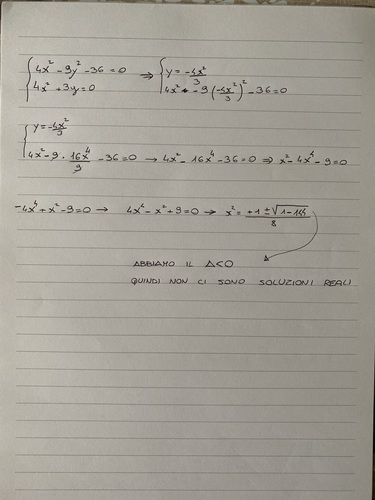 { 4x² - 9y² - 36 = 0 ⇒ { y = -4x²/3
{ 4x² + 3y = 0 { 4x² - 9(-4x²/3)² - 36 = 0
{ y = -4x²/3
{ 4x² - 9 · 16x⁴/9 - 36 = 0 → 4x² - 16x⁴ - 36 = 0 ⇒ x² - 4x⁴ - 9 = 0
-4x⁴ + x² - 9 = 0 → 4x⁴ - x² + 9 = 0 → x² = +1 ± √1 - 144/8
ABBIAMO IL Δ<0
QUINDI NON CI SONO SOLUZIONI REALI